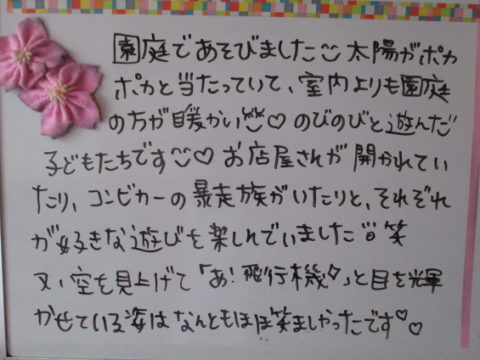 園庭であそびました 太陽がポカ
ポカと当たっていて、室内よりも園庭
の方が暖かい♡ のびのびと遊んだ
子どもたちです♡ お店屋さんが開かれてい
たり、コンビカーの暴走族がいたりと、それぞれ
が好きな遊びを楽しんでいました 笑
又、空を見上げて「あ!飛行機」と目を輝
かせている姿はなんともほほ笑ましかったです♡♡